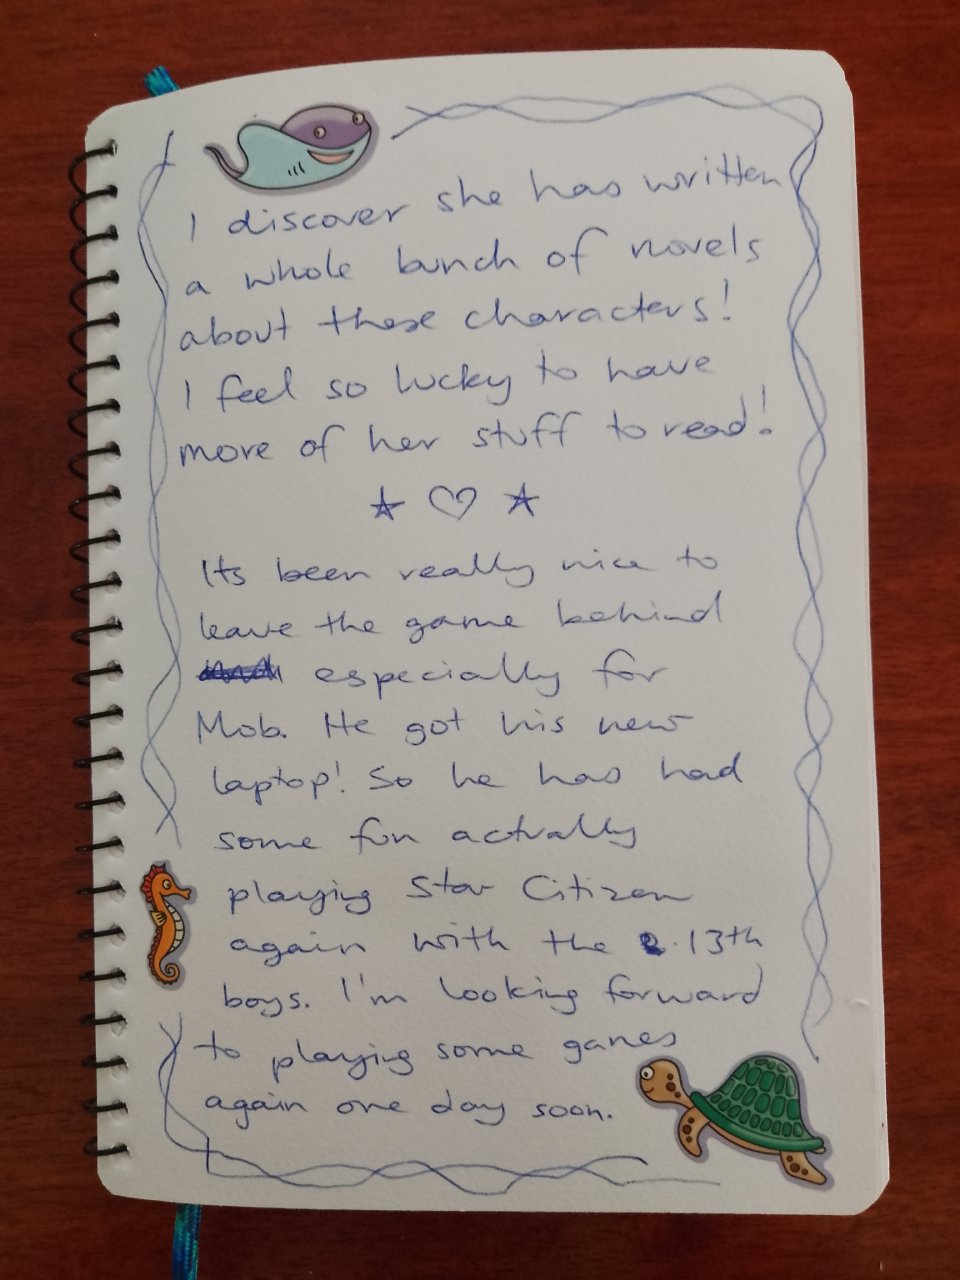 I discover she has written
a whole bunch of novels
about these characters!
I feel so lucky to have
more of her stuff to read!
☆ ♡ ☆
Its been really nice to
leave the game behind
especially for
Mob. He got his new
laptop! So he has had
some fun actually
playing Star Citizen
again with the 13th
boys. I'm looking forward
to playing some games
again one day soon.